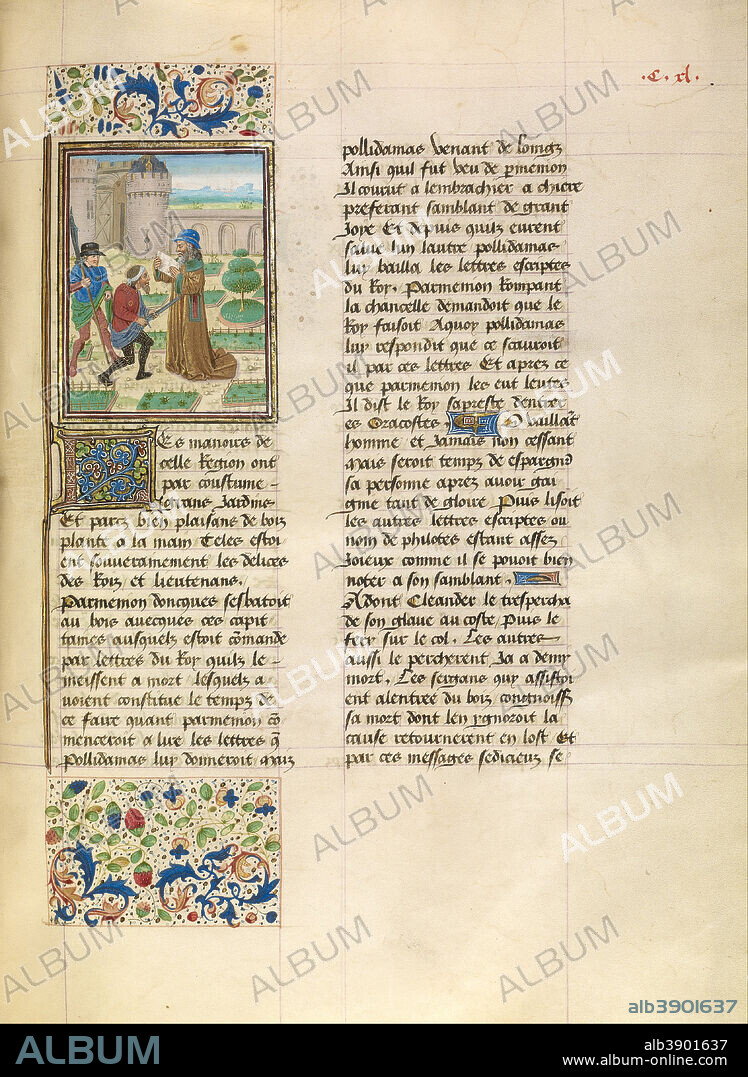 .C. xl.
Es manoirs de
celle Region ont
par coustume
grans Jardins
Et parcz bien plaisans de bois
plante a la main Celes estoi
ent souverainement les delices
des Rois et lieutenans.
Parmenion doncques sesbatoit
au bois avecques ces capi
taines ausquelz estoit cōmande
par lettres du Roy quilz le
meissent a mort lesquelz a
voient constitue le temps de
ce faire quant parmenion cō
menceroit a lire les lettres q̄
Pollidamas luy donneroit Mais
pollidamas venant de loingz
Ainsi quil fut veu de pmenion
Il courut a lembrachier a chiere
preferant samblant de grant
Joye Et depuis quilz eurent
salue lun lautre pollidamas
luy bailla les lettres escriptes
du Roy. Parmenion Rompant
la chancelle demandoit que le
Roy faisoit Aquoy pollidamas
luy respondit que ce scauroit
il par ces lettres Et aprez ce
que parmenion les eut leutes
Il dist le Roy sapreste dentrer
es Oracostes. O vaillāt
homme et Jamais non cessant
Mais seroit temps de espargnr̄
sa personne aprez avoir gai
gnie tant de gloire Puis lisoit
les autres lettres escriptes ou
nom de philotes estant assez
Joieux comme il se pouoit bien
noter a son samblant.
Adont Cleander le trespercha
de son glaive au coste Puis le
fery sur le col. Les autres
aussi le percherent Ja a demy
mort. Les sergans quy assistoi
ent alentree du bois congnoiss
sa mort dont len ygnoroit la
cause retournerent en lost Et
par ces messages sedicieux se
ALBUM
alb3901637
ALBUM
alb3901637
www.album-online.com